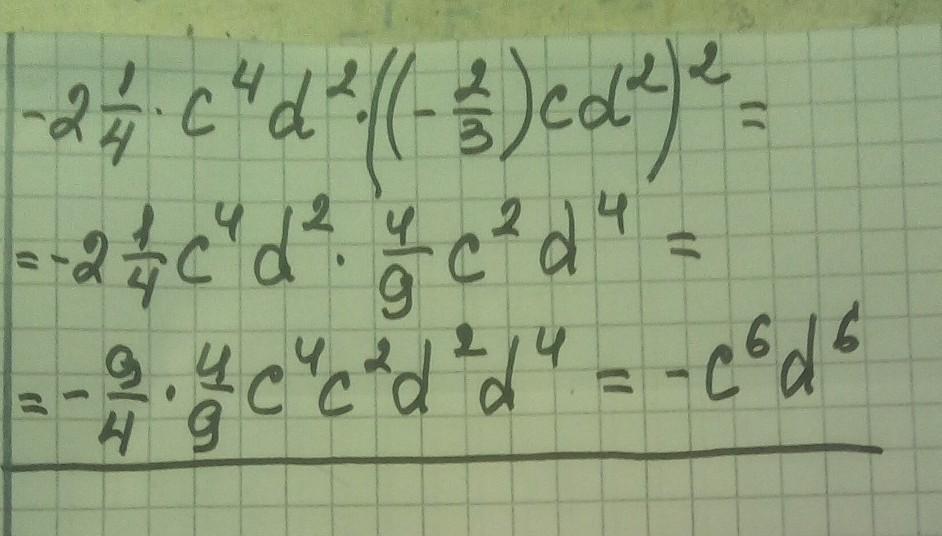 -2 1/4 · c⁴d² · ((-2/3)cd²)² =
= -2 1/4 c⁴d² · 4/9 c²d⁴ =
= -9/4 · 4/9 c⁴c²d²d⁴ = -c⁶d⁶